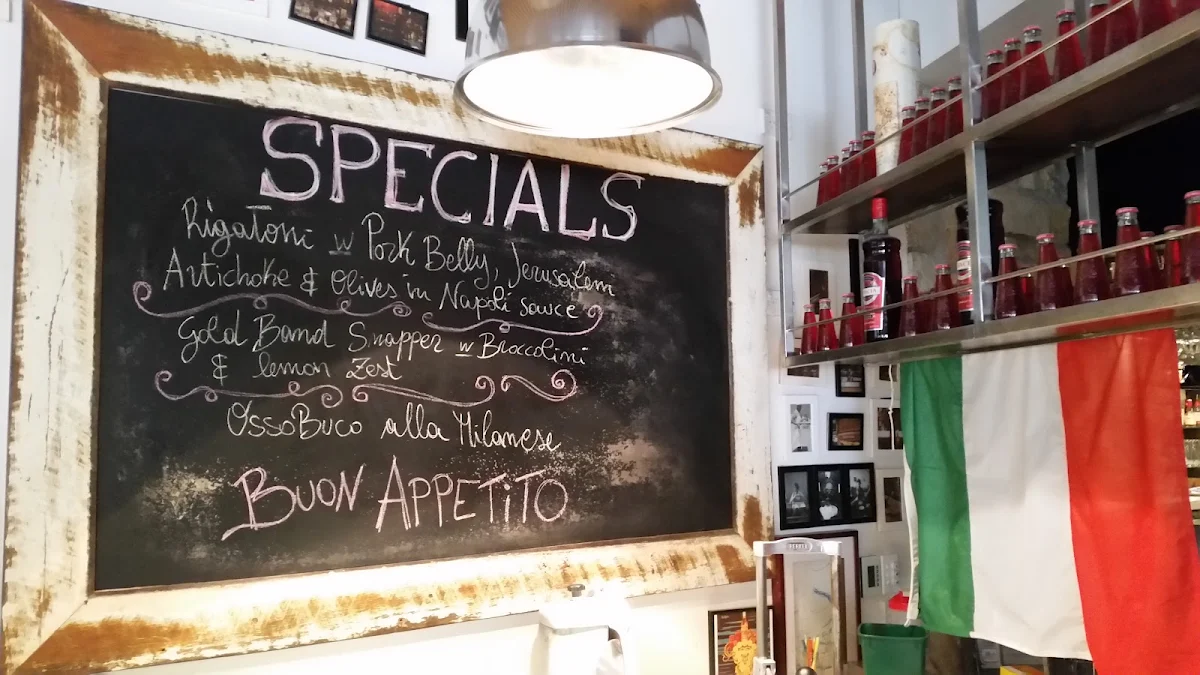 SPECIALS
Rigatoni w Pork Belly, Jerusalem
Artichoke & Olives in Napoli sauce
Gold Band Snapper w Broccolini
& lemon Zest
OssoBuco alla Milanese
BUON APPETITO